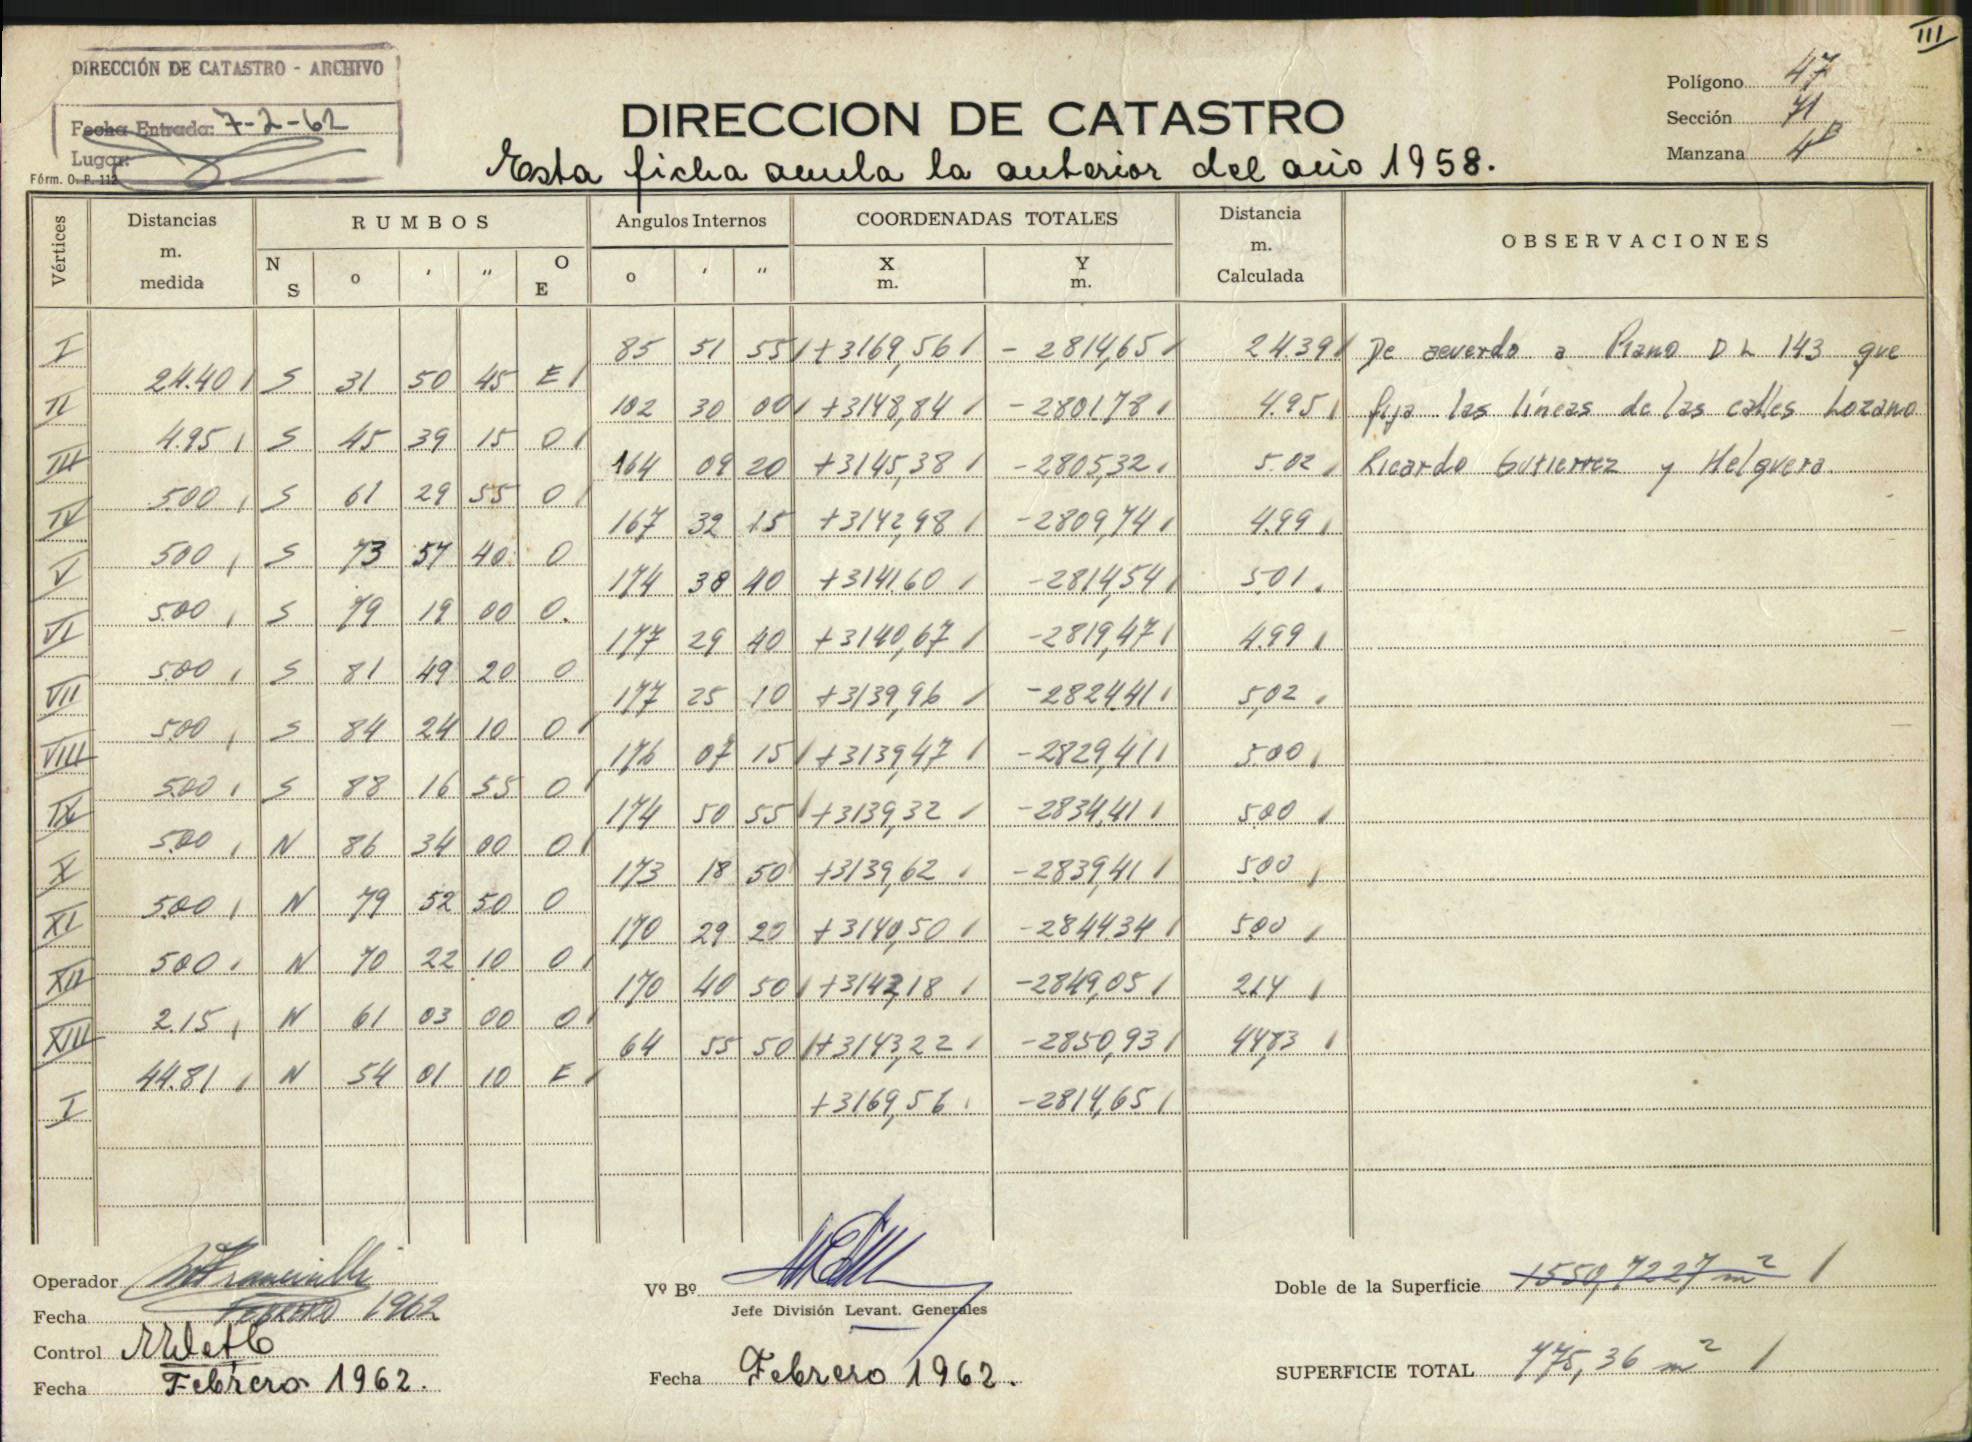 III
DIRECCIÓN DE CATASTRO - ARCHIVO
Fecha Entrada: 7-2-62
Lugar:
Fórm. O. P. 112
DIRECCION DE CATASTRO
Esta ficha anula la anterior del año 1958.
Polígono 47
Sección 71
Manzana 4B
Vértices Distancias m. medida RUMBOS Angulos Internos COORDENADAS TOTALES Distancia m. Calculada OBSERVACIONES
N S o ' " O E o ' " X m. Y m.
I 85 51 55 +3169,56 -2814,65 24.39 De acuerdo a Plano DL 143 que
24.40 S 31 50 45 E
II 102 30 00 +3148,84 -2801,78 4.95 fija las líneas de las calles Lozano
4.95 S 45 39 15 O
III 164 09 20 +3145,38 -2805,32 5.02 Ricardo Gutierrez y Helguera.
5.00 S 61 29 55 O
IV 167 32 15 +3142,98 -2809,74 4.99
5.00 S 73 57 40 O
V 174 38 40 +3141.60 -2814,54 5.01
5.00 S 79 19 00 O.
VI 177 29 40 +3140,67 -2819,47 4.99
5.00 S 81 49 20 O
VII 177 25 10 +3139,96 -2824.41 5,02
5.00 S 84 24 10 O
VIII 176 07 15 +3139,47 -2829,41 5.00
5.00 S 88 16 55 O
IX 174 50 55 +3139,32 -2834,41 5.00
5.00 N 86 34 00 O
X 173 18 50 +3139,62 -2839,41 5.00
5.00 N 79 52 50 O
XI 170 29 20 +3140,50 -2844 34 5.00
5.00 N 70 22 10 O
XII 170 40 50 -2849,05 2.14
2.15 N 61 03 00 O
XIII 64 55 50 +3143,22 -2850,93 44,83
44.81 N 54 01 10 E
I +3169,56 -2814,65
Operador
Fecha Febrero 1962
Control
Fecha Febrero 1962.
Vº Bº
Jefe División Levant. Generales
Fecha Febrero 1962.
Doble de la Superficie 1550,7227 m²
SUPERFICIE TOTAL 775,36 m²